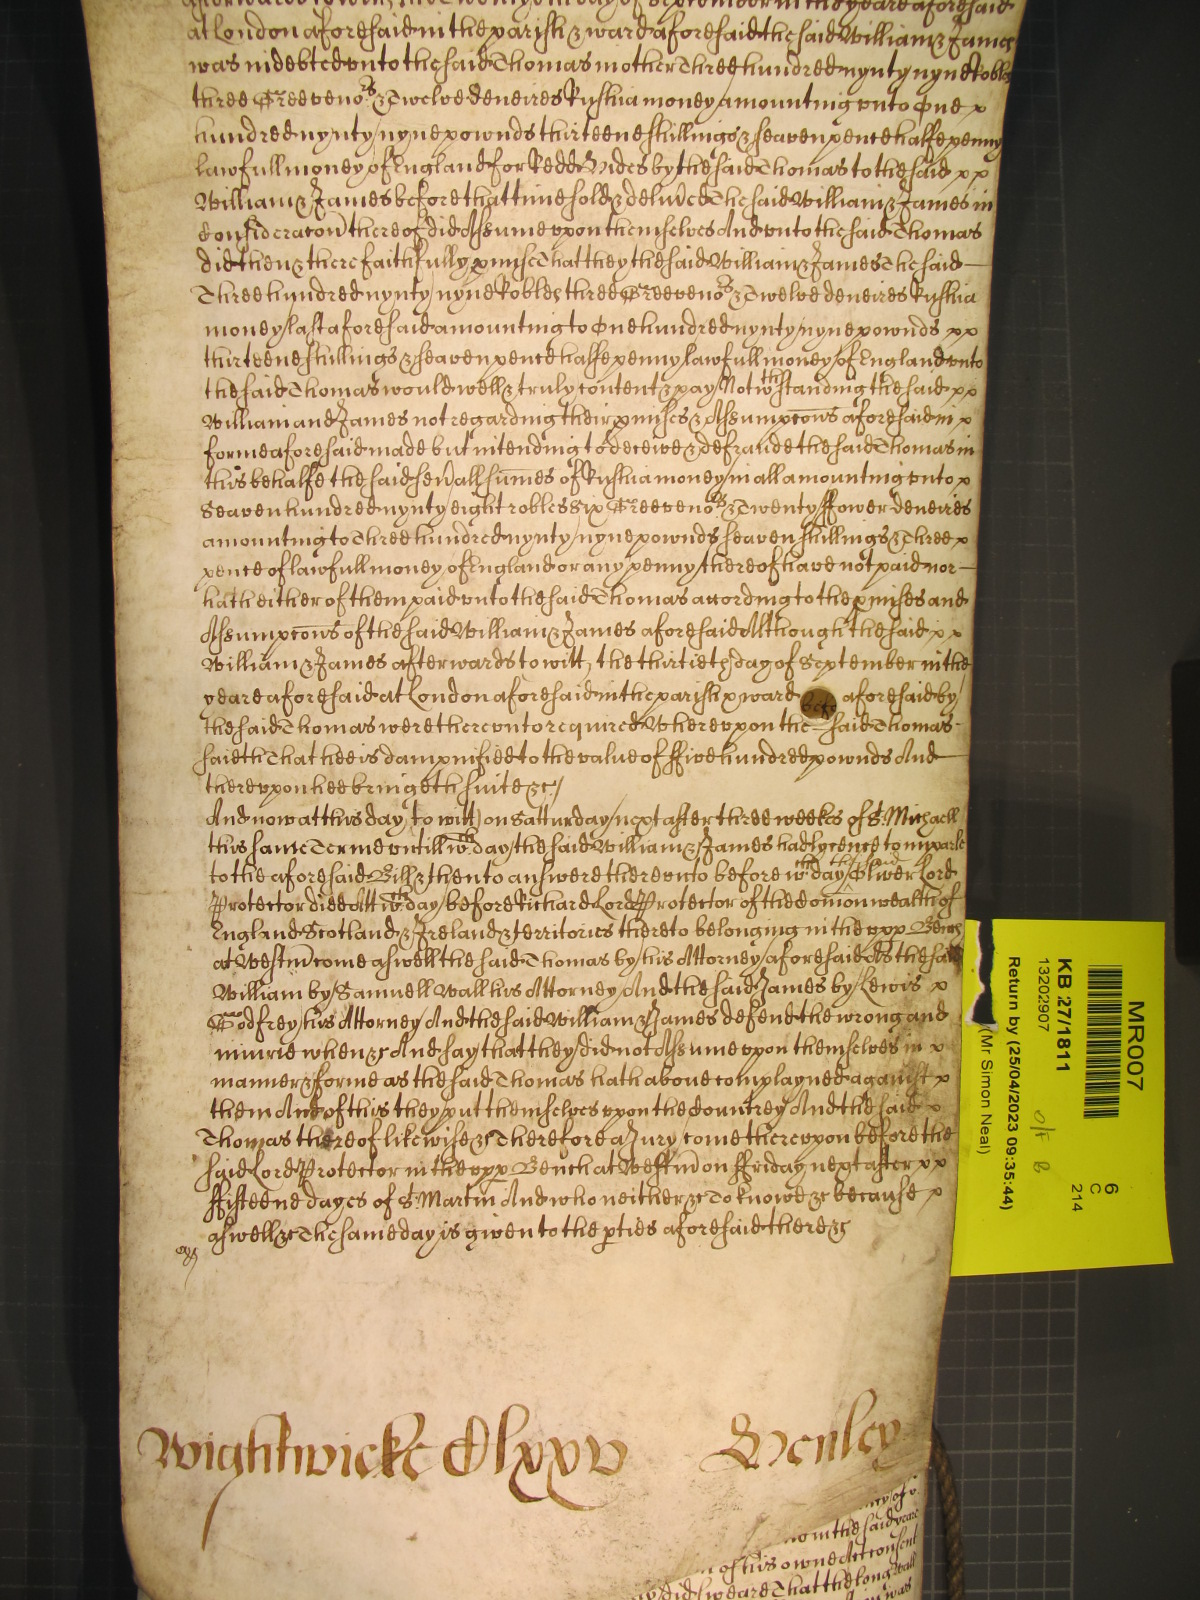 afterwards to witt the Twentyeth day of September in the yeare aforesaid
at London aforesaid in the parish & ward aforesaid the said William & James
was indebted vnto the said Thomas in other Three hundred nynty nyne Robles
three Greeveno:rs & Twelve deneires Russhia money amounting vnto One x
hundred nynty nyne pownds thirteene shillings & seaven pence halfe penny
lawfull money of England for Redd Hides by the said Thomas to the said x x
William & James before that time sold & deliuĕed The said William & James in
Consideracõn thereof did Assume vpon themselves And vnto the said Thomas
did then & there faithfully ꝓmise That they the said William & James The said —
Three hundred nynty nyne Robles three Greeveno:rs & Twelve deneires Russhia
money last aforesaid amounting to One hundred nynty nyne pownds x x
thirteene shillings & seaven pence halfe penny lawfull money of England vnto
the said Thomas would well & truly content & pay Notwthstanding the said x x
William and James not regarding their ꝓmises & Assumpcõns aforesaid in x
forme aforesaid made but intending to deceive & defraude the said Thomas in
this behalfe the said seũall sum̄es of Russhia money in all amounting vnto x
Seaven hundred nynty eight robles six Greeveno:rs & Twenty ffower deneires
amounting to Three hundred nynty nyne pownds seaven shillings & Three x
pence of lawfull money of England or any penny thereof have not paid nor —
hath either of them paid vnto the said Thomas according to the ꝓmises and
Assumpcõns of the said William & James aforesaid Although the said x x
William & James afterwards to witt, the thirtieth day of September in the
yeare aforesaid at London aforesaid in the parish & ward aforesaid by
the said Thomas were therevnto required Wherevpon the — said Thomas -
saieth That hee is dampnified to the value of ffive hundred pownds And —
therevpon hee bringeth suite &c /
And now at this day to witt on Satturday next after three weekes of St: Michaell
this same Terme vntill wch day the said William & James had lycence to imparle
to the aforesaid Bill & then to answere therevnto before wch day the said Oliver Lord
Protector died Att wch day before Richard Lord Protector of the Com̄onwealth of
England Scotland & Ireland & Territories thereto belonging in the vpp Bench
at Westm̄ come aswell the said Thomas by his Attorney aforesaid As the said
William by Samuell Wall his Attorney And the said James by Lewis x
Godfrey his Attorney And the said William & James defend the wrong and
iniurie when &c And say that they did not Assume vpon themselves in x
manner & forme as the said Thomas hath above complayned against x
them And of this they put themselves vpon the Countrey And the said x
Thomas thereof likewise &c Therefore a Jury come therevpon before the
said Lord Protector in the vpp Bench at Westm̄ on ffriday next after x x
ffifteene dayes of St: Martin And who neither &c To knowe &c because x
aswell &c The same day is given to the ꝑties aforesaid there &c
Wightwicke Clxxv Henley
of his owne Act consent
did sweare That the long wall
MR007
6
C
214
KB 27/1811
13202907
Return by (25/04/2023 09:35:44)
(Mr Simon Neal)
O/F B